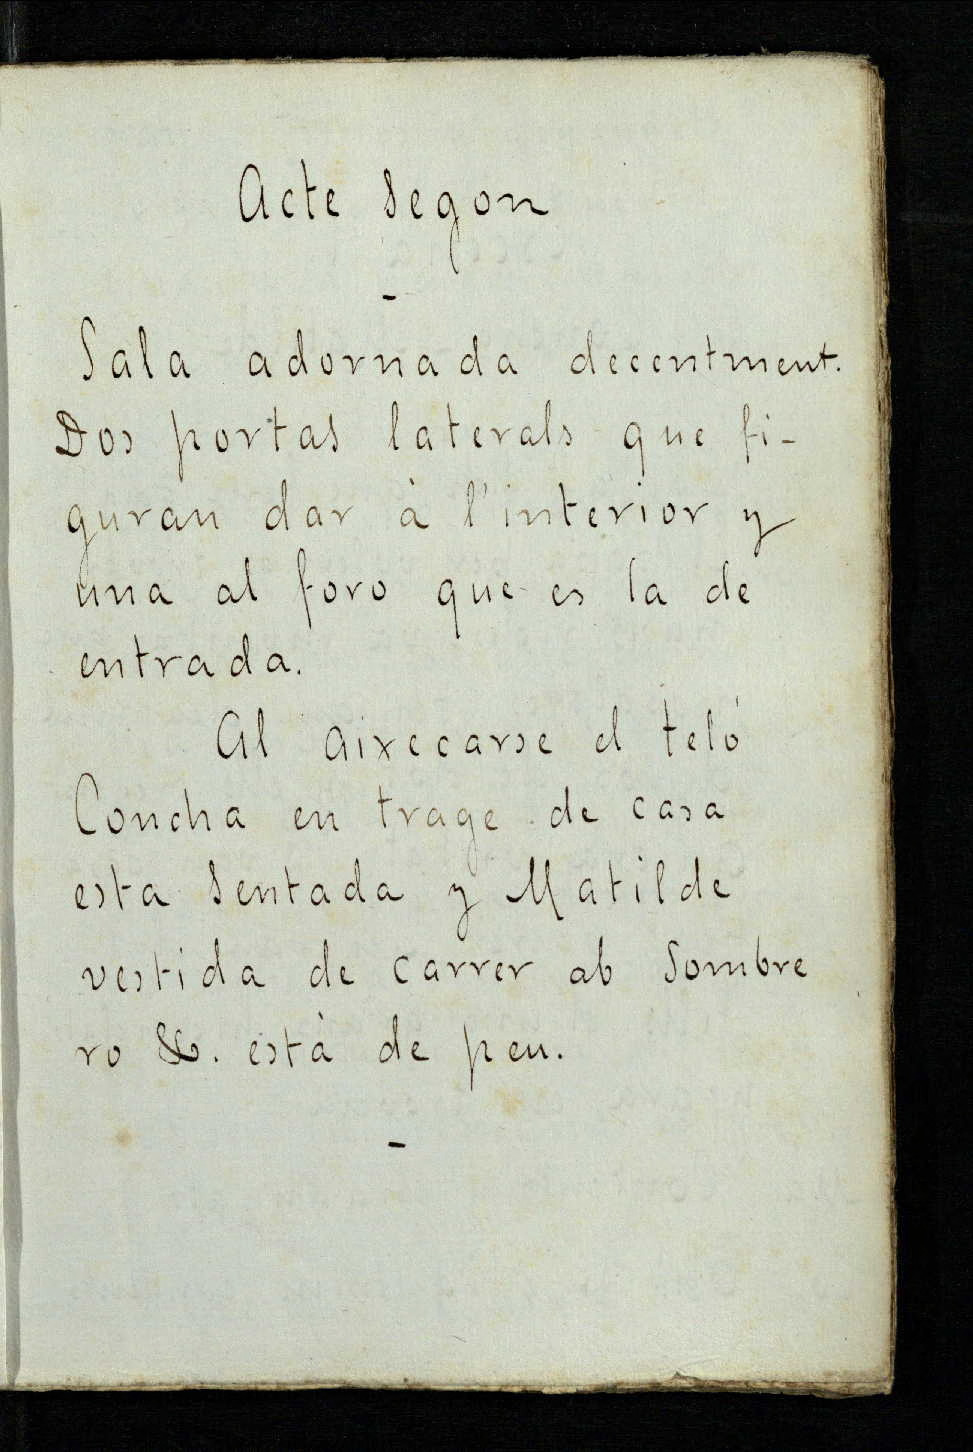 Acte segon
-
Sala adornada decentment.
Dos portas laterals que fi-
guran dar à l'interior y
una al foro que es la de
entrada.
Al aixecarse el teló
Concha en trage de casa
esta sentada y Matilde
vestida de carrer ab sombre
ro &. està de peu.
-